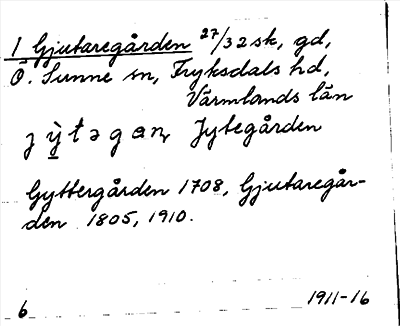 1 Gjutaregården 27/32 sk, gd,
Ö. Sunne sn, Fryksdals hd,
Värmlands län
Jytegården
Gyttergården 1708, Gjutaregår-
den 1805, 1910.
6
1911-16